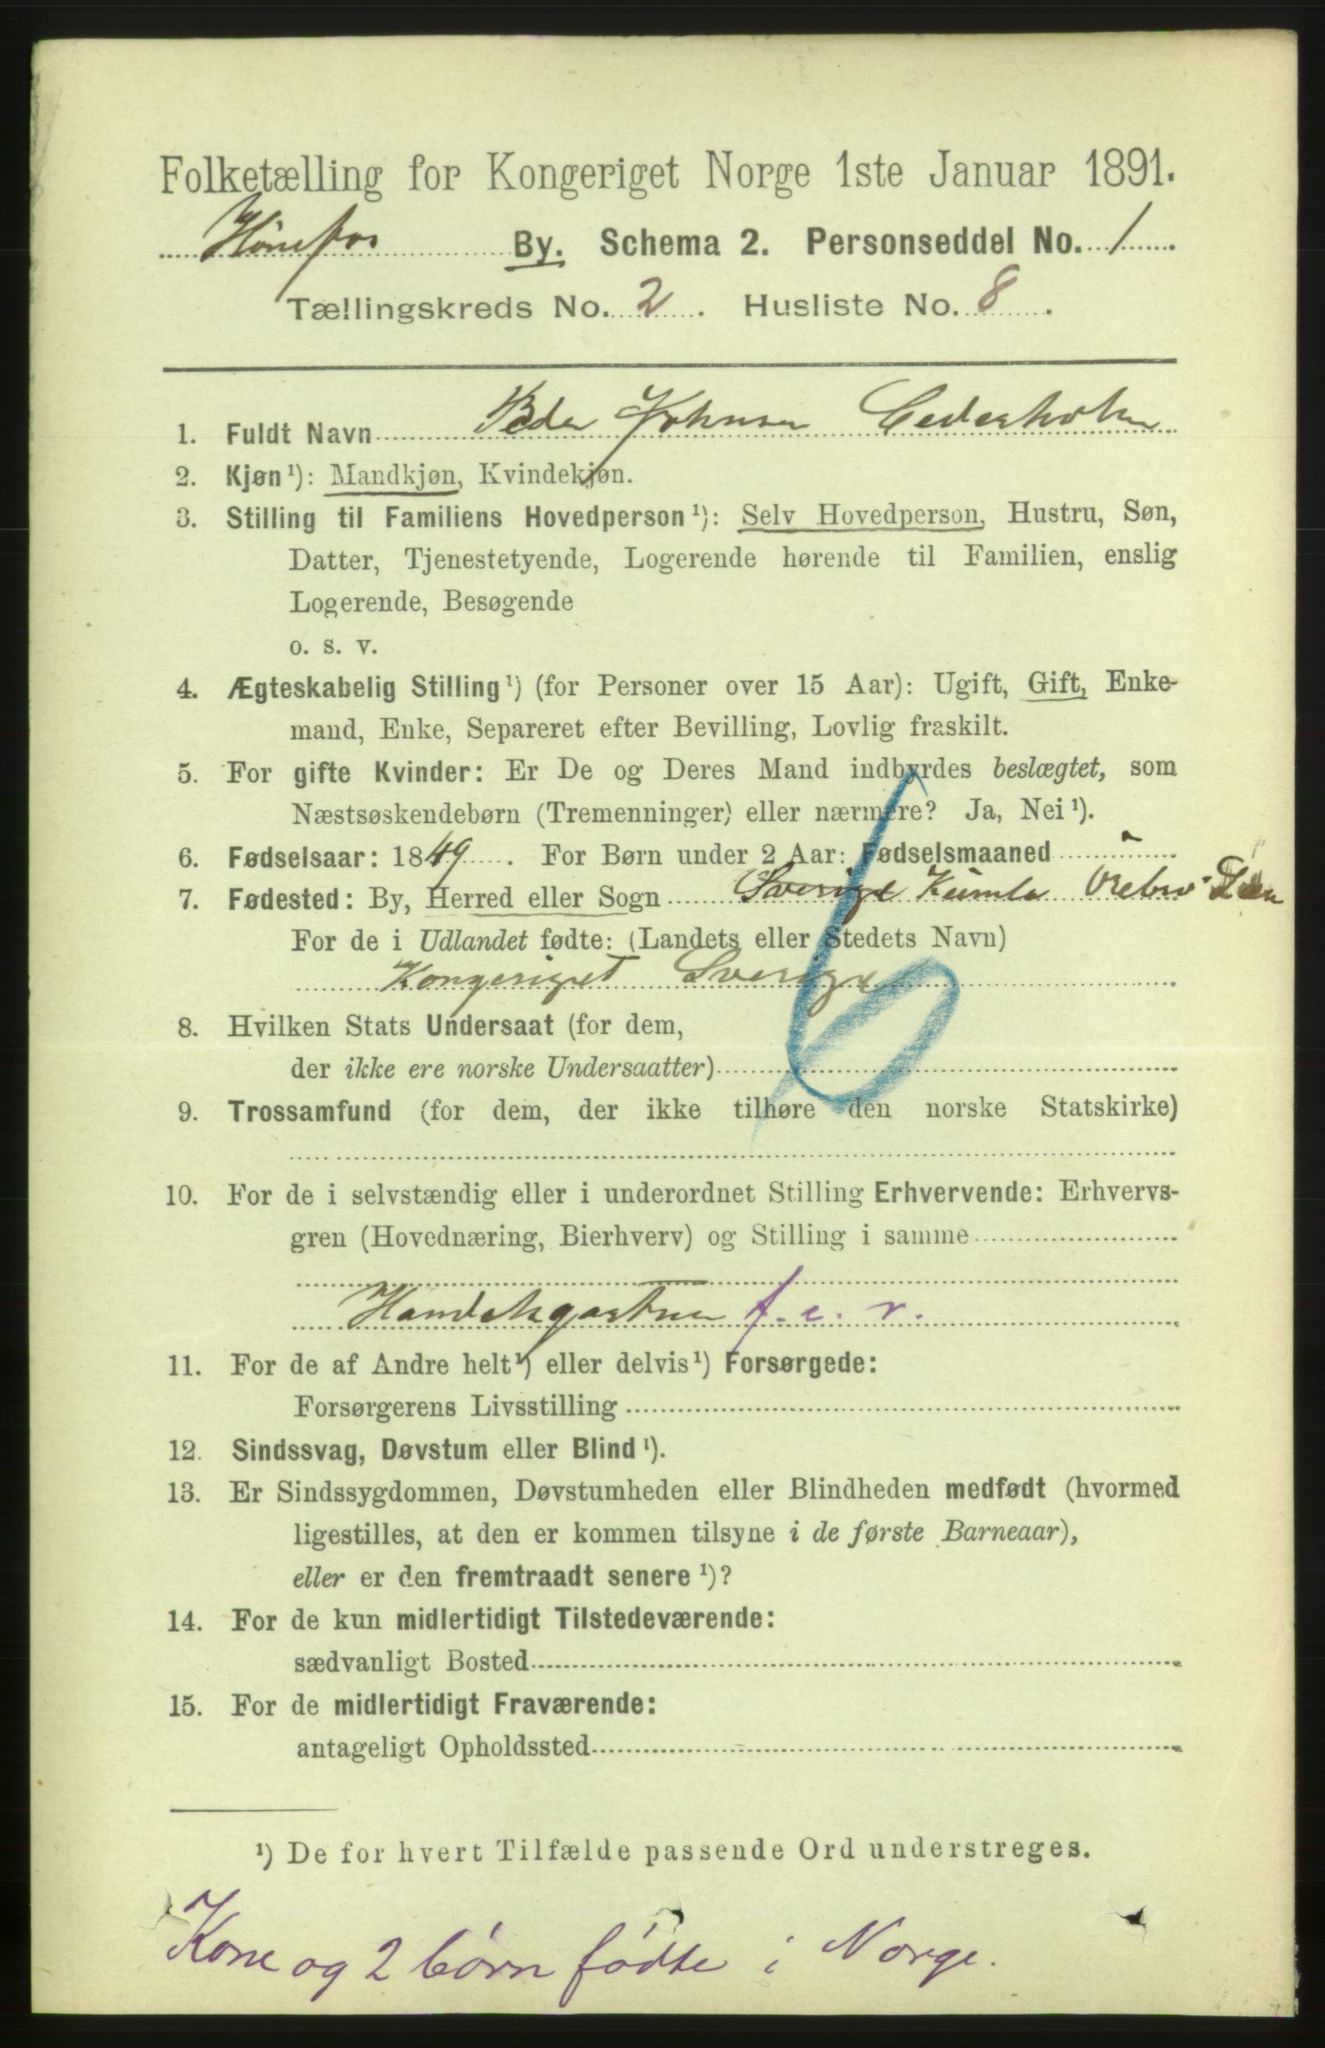 Folketælling for Kongeriget Norge 1ste Januar 1891.
Hønefos By. Schema 2. Personseddel No. 1
Tællingskreds No. 2. Husliste No. 8.
1. Fuldt Navn Peder Johnsen Cederholm
2. Kjøn¹): Mandkjøn, Kvindekjøn.
3. Stilling til Familiens Hovedperson¹): Selv Hovedperson, Hustru, Søn,
Datter, Tjenestetyende, Logerende hørende til Familien, enslig
Logerende, Besøgende
o. s. v.
4. Ægteskabelig Stilling¹) (for Personer over 15 Aar): Ugift, Gift, Enke-
mand, Enke, Separeret efter Bevilling, Lovlig fraskilt.
5. For gifte Kvinder: Er De og Deres Mand indbyrdes beslægtet, som
Næstsøskendebørn (Tremenninger) eller nærmere? Ja, Nei¹).
6. Fødselsaar: 1849. For Børn under 2 Aar: Fødselsmaaned
7. Fødested: By, Herred eller Sogn Sverige Kumla Örebro Len
For de i Udlandet fødte: (Landets eller Stedets Navn)
Kongeriget Sverige
8. Hvilken Stats Undersaat (for dem,
der ikke ere norske Undersaatter)
9. Trossamfund (for dem, der ikke tilhøre den norske Statskirke)
10. For de i selvstændig eller i underordnet Stilling Erhvervende: Erhvervs-
gren (Hovednæring, Bierhverv) og Stilling i samme
Handelsgartner f. e. r.
11. For de af Andre helt¹) eller delvis¹) Forsørgede:
Forsørgerens Livsstilling
12. Sindssvag, Døvstum eller Blind¹).
13. Er Sindssygdommen, Døvstumheden eller Blindheden medfødt (hvormed
ligestilles, at den er kommen tilsyne i de første Barneaar),
eller er den fremtraadt senere¹)?
14. For de kun midlertidigt Tilstedeværende:
sædvanligt Bosted
15. For de midlertidigt Fraværende:
antageligt Opholdssted
¹) De for hvert Tilfælde passende Ord understreges.
Kone og 2 børn fødte i Norge.